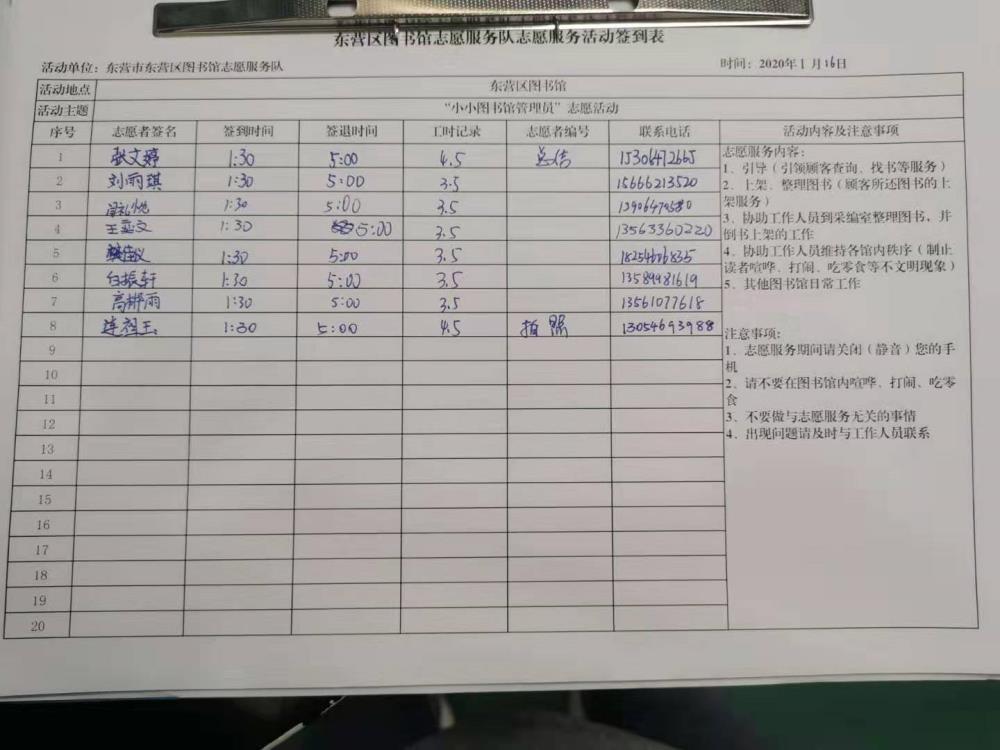 东营区图书馆志愿服务队志愿服务活动签到表
活动单位：东营市东营区图书馆志愿服务队 时间：2020年1月16日
活动地点 东营区图书馆
活动主题 “小小图书馆管理员”志愿活动
序号 志愿者签名 签到时间 签退时间 工时记录 志愿者编号 联系电话 活动内容及注意事项
1 张文婷 1:30 5:00 4.5 总结 15306472665
2 刘雨琪 1:30 5:00 3.5 15666213520
3 1:30 5:00 3.5
4 1:30 5:00 3.5 13563360220
5 1:30 5:00 3.5
6 白振轩 1:30 5:00 3.5 13589981619
7 1:30 5:00 3.5 13561077618
8 1:30 5:00 4.5 拍照 13054693988
9
10
11
12
13
14
15
16
17
18
19
20
志愿服务内容：
1、引导（引领顾客查询、找书等服务）
2、上架、整理图书（顾客所还图书的上
架服务）
3、协助工作人员到采编室整理图书，并
倒书上架的工作
4、协助工作人员维持各馆内秩序（制止
读者喧哗、打闹、吃零食等不文明现象）
5、其他图书馆日常工作
注意事项：
1、志愿服务期间请关闭（静音）您的手
机
2、请不要在图书馆内喧哗、打闹、吃零
食
3、不要做与志愿服务无关的事情
4、出现问题请及时与工作人员联系